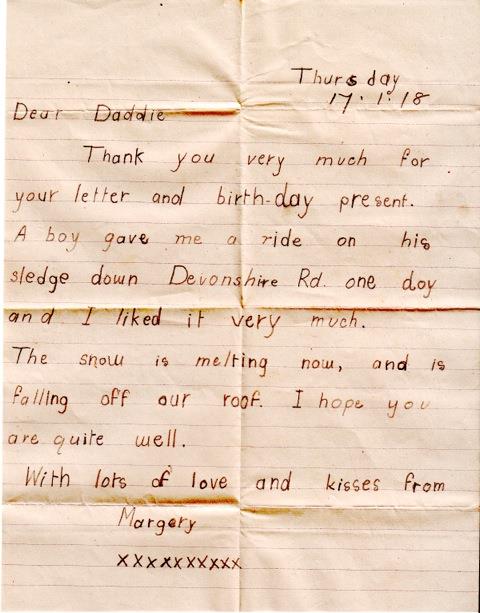 Thursday
17.1.18
Dear Daddie
Thank you very much for
your letter and birth-day present.
A boy gave me a ride on his
sledge down Devonshire Rd. one day
and I liked it very much.
The snow is melting now, and is
falling off our roof. I hope you
are quite well.
With lots of love and kisses from
Margery
xxxxxxxxxx